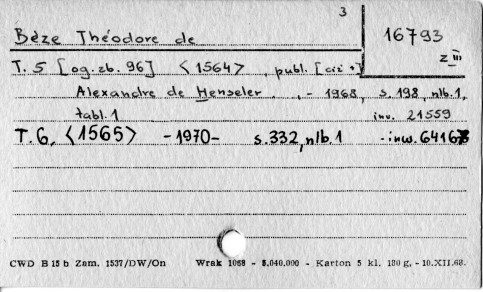 3
Bèze Théodore de
16793
z III
T. 5 [og. zb. 96] <1564> , publ. [
Alexandre de Henseler . , - 1968, s. 198, nlb. 1,
tabl. 1 inv. 21559
T. 6, <1565> - 1970 - s. 332, nlb. 1 - inw. 64167
CWD B 15 b Zam. 1537/DW/On Wrak 1068 - 5.040.000 - Karton 5 kl. 180 g. - 10.XII.68.